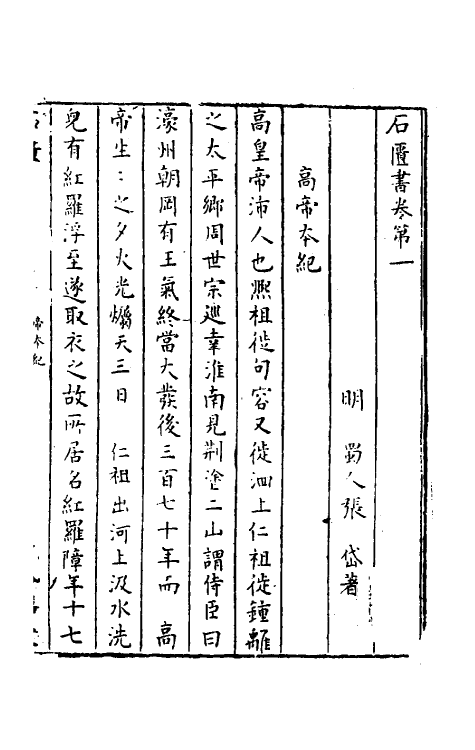 石匱書卷第一
明 蜀人張岱著
高帝本紀
高皇帝沛人也熙祖徙句容又徙泗上仁祖徙鍾離
之太平鄉周世宗巡幸淮南見荆塗二山謂侍臣曰
濠州朝岡有王氣終當大發後三百七十年而 高
帝生：之夕火光燭天三日 仁祖出河上汲水洗
兒有紅羅浮至遂取衣之故所居名紅羅障年十七
帝本紀